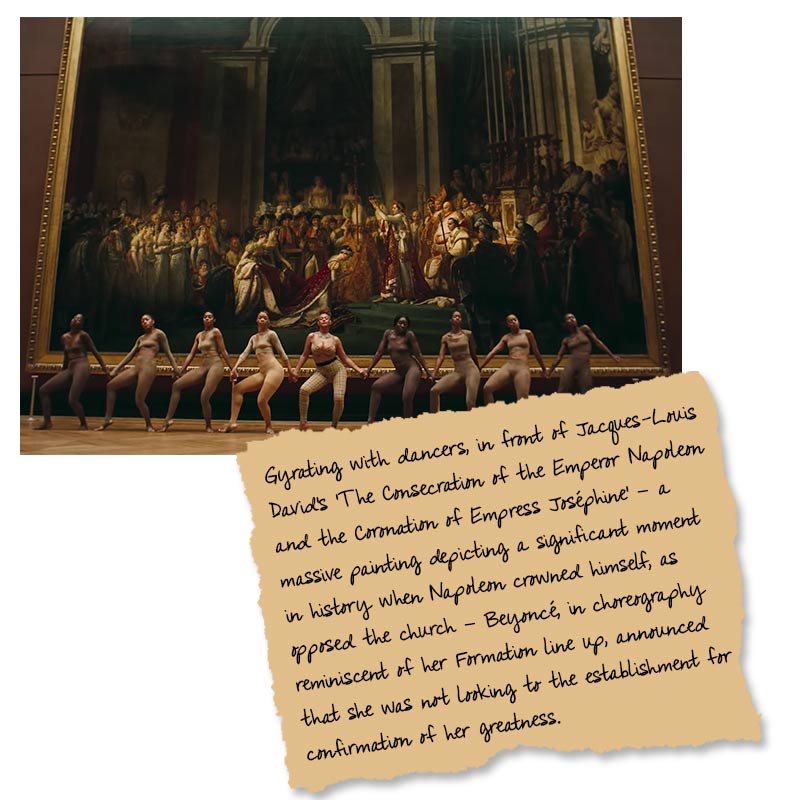 Gyrating with dancers, in front of Jacques-Louis
David's 'The Consecration of the Emperor Napoleon
and the Coronation of Empress Joséphine' – a
massive painting depicting a significant moment
in history when Napoleon crowned himself, as
opposed the church – Beyoncé, in choreography
reminiscent of her Formation line up, announced
that she was not looking to the establishment for
confirmation of her greatness.